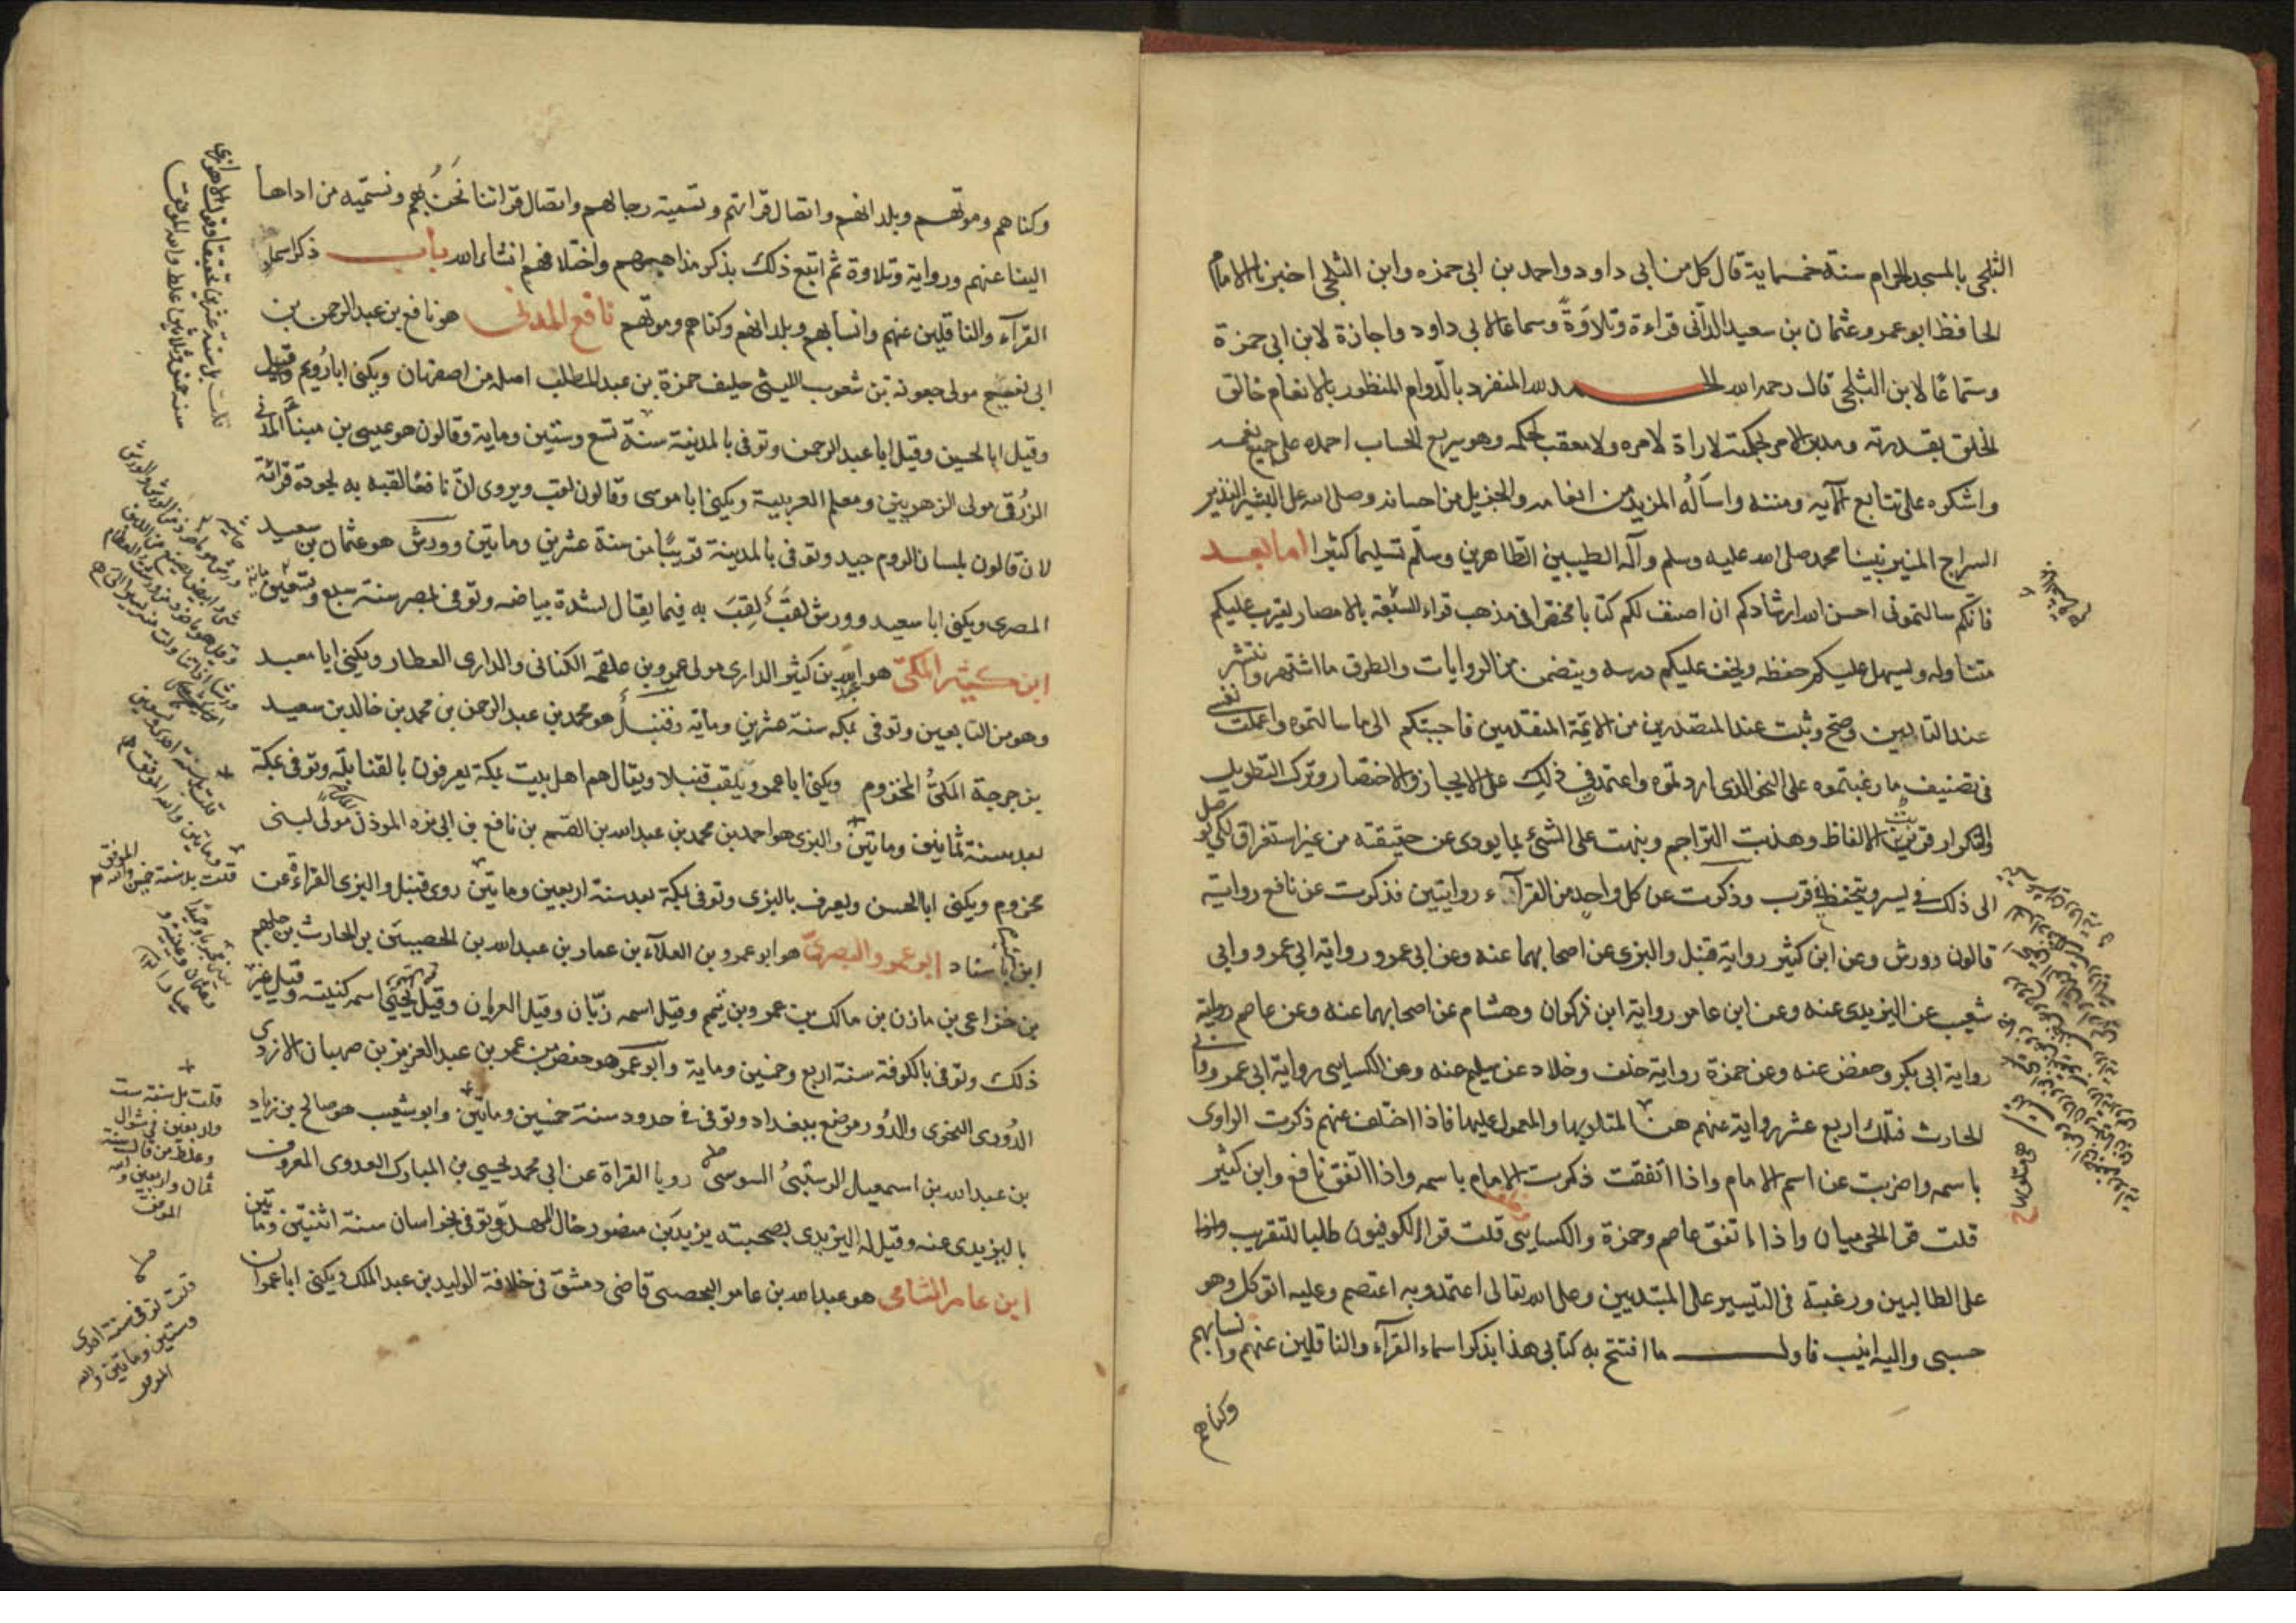 الثلجى بالمسجد الحرام سنة خمسماية قال كل من ابى داود واحمد بن ابى حمزه وابن الثلجى اخبرنا الامام
الحافظ ابو عمرو عثمان بن سعيد الدّانى قراءة وتلاوةً وسماعا لابى داود واجازة لابن ابى حمزة
وسماعًا لابن الثلجى قال رحمه الله الحمد لله المنفرد بالدّوام المنظور بالانعام خالق
الخلق بقدرته ومدبر الامر بحكمته لا رادّ لامره ولا معقب لحكمه وهو سريع الحساب احمده على جميع نعمه
واشكره على تتابع آلايه ومننه واسأله المزيد من انعامه والجزيل من احسانه وصلى الله على البشير النذير
السراج المنير نبينا محمد صلى الله عليه وسلم وآله الطيبين الطاهرين وسلّم تسليما كثيرا اما بعد
فانّكم سالتمونى احسن الله ارشادكم ان اصنف لكم كتابا مختصرا فى مذهب قراء السّبعة بالامصار يقرب عليكم
متناوله ويسهل عليكم حفظه ويخف عليكم درسه ويتضمن من الروايات والطرق ما اشتهر وانتشر
عند التالين وصح وثبت عند المتصدرين من الائمة المتقدمين فاجبتكم الى ما سالتموه واعملت نفسى
فى تصنيف ما رغبتموه على النحو الذى اردتموه واعتمدت فى ذلك على الايجاز والاختصار وترك التطويل
والتكرار وقربت الالفاظ وهذبت التراجم ونبهت على الشئ بما يودى عن حقيقته من غير استغراق لكى يوصل
الى ذلك فى يسر ويتحفظ فى قرب وذكرت عن كل واحد من القرآء روايتين فذكرت عن نافع رواية
قالون وورش وعن ابن كثير رواية قنبل والبزى عن اصحابهما عنه وعن ابى عمرو رواية ابى عمر وابى
شعيب عن اليزيدى عنه وعن ابن عامر رواية ابن ذكوان وهشام عن اصحابهما عنه وعن عاصم رواية
رواية ابى بكر وحفص عنه وعن حمزة رواية خلف وخلاد عن سليم عنه وعن الكسايى رواية ابى عمر وابى
الحارث فتلك اربع عشر رواية عنهم هن المتلو بها والمعول عليها فاذا اختلف عنهم ذكرت الراوى
باسمه واضربت عن اسم الامام واذا اتفقت ذكرت الامام باسمه واذا اتفق نافع وابن كثير
قلت قرا الحرميان واذا اتفق عاصم وحمزة والكسايى قلت قرا الكوفيون طلبا للتقريب
على الطالبين ورغبة فى التيسير على المبتديين وعلى الله تعالى اعتمد وبه اعتصم وعليه اتوكل وهو
حسبى واليه انيب فاول ما افتتح به كتابى هذا بذكر اسماء القرآء والناقلين عنهم وانسابهم
وكناهم
وكناهم وموتهم وبلدانهم واتصال قراتهم وتسمية رجالهم واتصال قراتنا نحن بهم وتسمية من اداها
الينا عنهم ورواية وتلاوة ثم اتبع ذلك بذكر مذاهبهم واختلافهم انشاء الله باب ذكر اسماء
القرآء والناقلين عنهم وانسابهم وبلدانهم وكناهم وموتهم نافع المدنى هو نافع بن عبد الرحمن بن
ابى نعيم مولى جعونة بن شعوب الليثى حليف حمزة بن عبد المطلب اصله من اصفهان ويكنى ابا رُويم وقيل
وقيل ابا الحسين وقيل ابا عبد الرحمن وتوفى بالمدينة سنة تسع وستين وماية وقالون هو عيسى بن مينا المدنى
الزُرقى مولى الزهريين ومعلم العربية ويكنى ابا موسى وقالون لقب ويروى ان نافعا لقبه به لجودة قرائة
لان قالون بلسان الروم جيد وتوفى بالمدينة قريبًا من سنة عشرين وماتين وورش هو عثمان بن سعيد
المصرى ويكنى ابا سعيد وورش لقبٌ لقب به فيما يقال لشدة بياضه وتوفى بمصر سنة سبع وتسعين
ابن كثير المكى هو عبد الله بن كثير الدارى مولى عمرو بن علقمه الكنانى والدارى العطار ويكنى ابا معبد
وهو من التابعين وتوفى بمكه سنة عشرين وماية وقنبلٌ هو محمد بن عبد الرحمن بن محمد بن خالد بن سعيد
بن جرجة المكىُّ المخزوم ويكنى ابا عمر ويلقب قنبلا ويقال هم اهل بيت بمكة يعرفون بالقنابلة وتوفى بمكة
بعد سنة ثمانين وماتين والبزى هو احمد بن محمد بن عبد الله بن القسم بن نافع بن ابى بزه الموذن مولى لبنى
مخزوم ويكنى ابا الحسن ويعرف بالبزى وتوفى بمكة بعد سنة اربعين وماتين روى قنبل والبزى القراءة عن
ابن كثير باسناد ابو عمرو البصرىّ هو ابو عمرو بن العلآء بن عمار بن عبد الله بن الحصين بن الحارث بن جلهم
بن خزاعى بن مازن بن مالك بن عمرو بن تميم وقيل اسمه زبّان وقيل العريان وقيل يحيى وقيل اسمه كنيته وقيل غير
ذلك وتوفى بالكوفة سنة اربع وخمسين وماية وابو عمر هو حفص بن عمر بن عبد العزيز بن صهبان الازدى
الدُورى النحوى والدُور موضع ببغداد وتوفى فى حدود سنة خمسين وماتين وابو شعيب هو صالح بن زياد
بن عبد الله بن اسمعيل الرستبىُ السوسى رويا القراة عن ابى محمد يحيى بن المبارك العدوى المعروف
باليزيدى عنه وقيل له اليزيدى بصحبته يزيد بن منصور خال المهدى وتوفى بخراسان سنة اثنتين وماتين
ابن عامر الشامى هو عبد الله بن عامر اليحصبى قاضى دمشق فى خلافة الوليد بن عبد الملك ويكنى ابا عمران
قلت بل سنة ست
واربعين فى شوال
وغلط من قال سنة
ثمان واربعين والله
الموفق
قلت توفى سنة احدى
وستين وماتين والله
الموفق